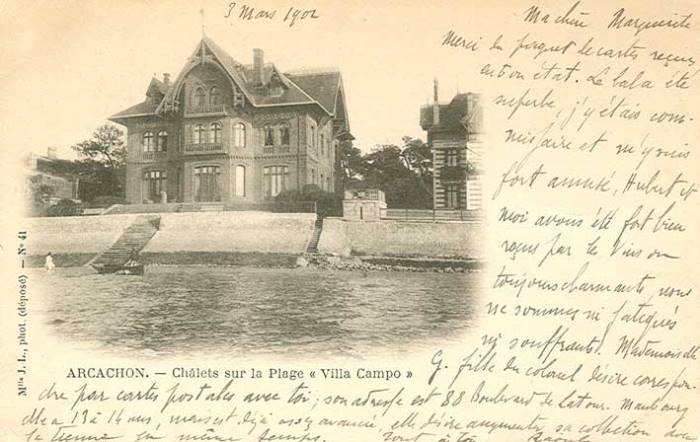 3 Mars 1902
Ma chère Marguerite
Merci du paquet de cartes reçues
en bon état. Le bal a été
superbe, j'y étais com-
missaire et m'y suis
fort amusé, Hubert et
moi avons été fort bien
reçus par les
toujours charmants, nous
ne sommes ni fatigués
ni souffrants. Mademoiselle
G. fille du colonel désire correspon
dre par cartes postales avec toi; son adresse est 88 Boulevard de Latour. Maubourg
elle a 13 à 14 ans, mais est déjà assez avancée, elle désire augmenter sa collection
la tienne en même temps. Tout à toi
Mlle J. L., phot. (déposé) — No 41
ARCACHON. — Châlets sur la Plage « Villa Campo »